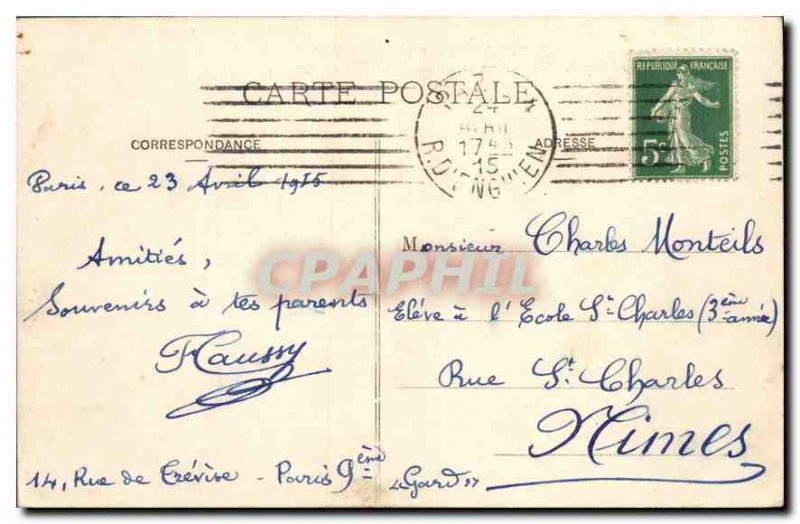 CARTE POSTALE
CORRESPONDANCE
ADRESSE
24
AVRIL
1745
15
R. D'ENGHIEN
REPUBLIQUE FRANÇAISE
5c
POSTES
Paris, ce 23 Avril 1915
Amitiés,
Souvenirs à tes parents
14, Rue de Trévise - Paris 9ème
Monsieur Charles Monteils
Elève à l'Ecole St Charles (3ème année)
Rue St Charles
Nimes
"Gard"
CPAPHIL